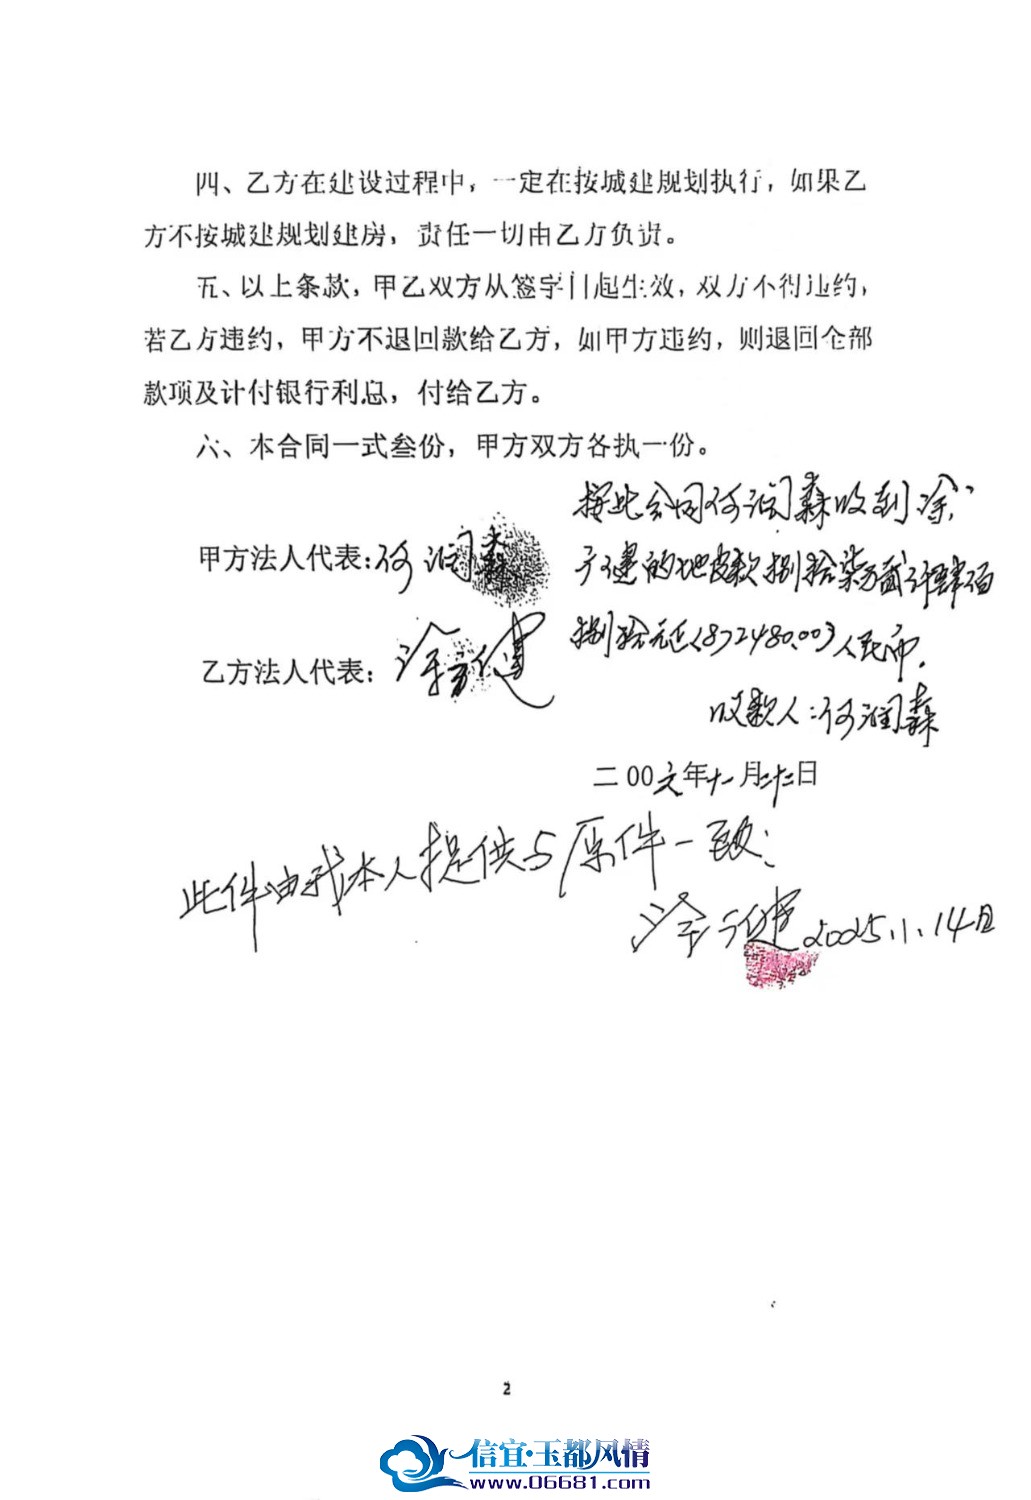 四、乙方在建设过程中，一定在按城建规划执行，如果乙
方不按城建规划建房，责任一切由乙方负责。
五、以上条款，甲乙双方从签字日起生效，双方不得违约，
若乙方违约，甲方不退回款给乙方，如甲方违约，则退回全部
款项及计付银行利息，付给乙方。
六、本合同一式叁份，甲方双方各执一份。
按此合同何润森收到涂
于建的地皮款捌拾柒万贰仟肆佰
捌拾元正(872480.00)人民币.
甲方法人代表:何润森
乙方法人代表:
收款人:何润森
二00六年十一月二十二日
此件由我本人提供与原件一致:
2025.1.14日
2
信宜·玉都风情
www.06681.com